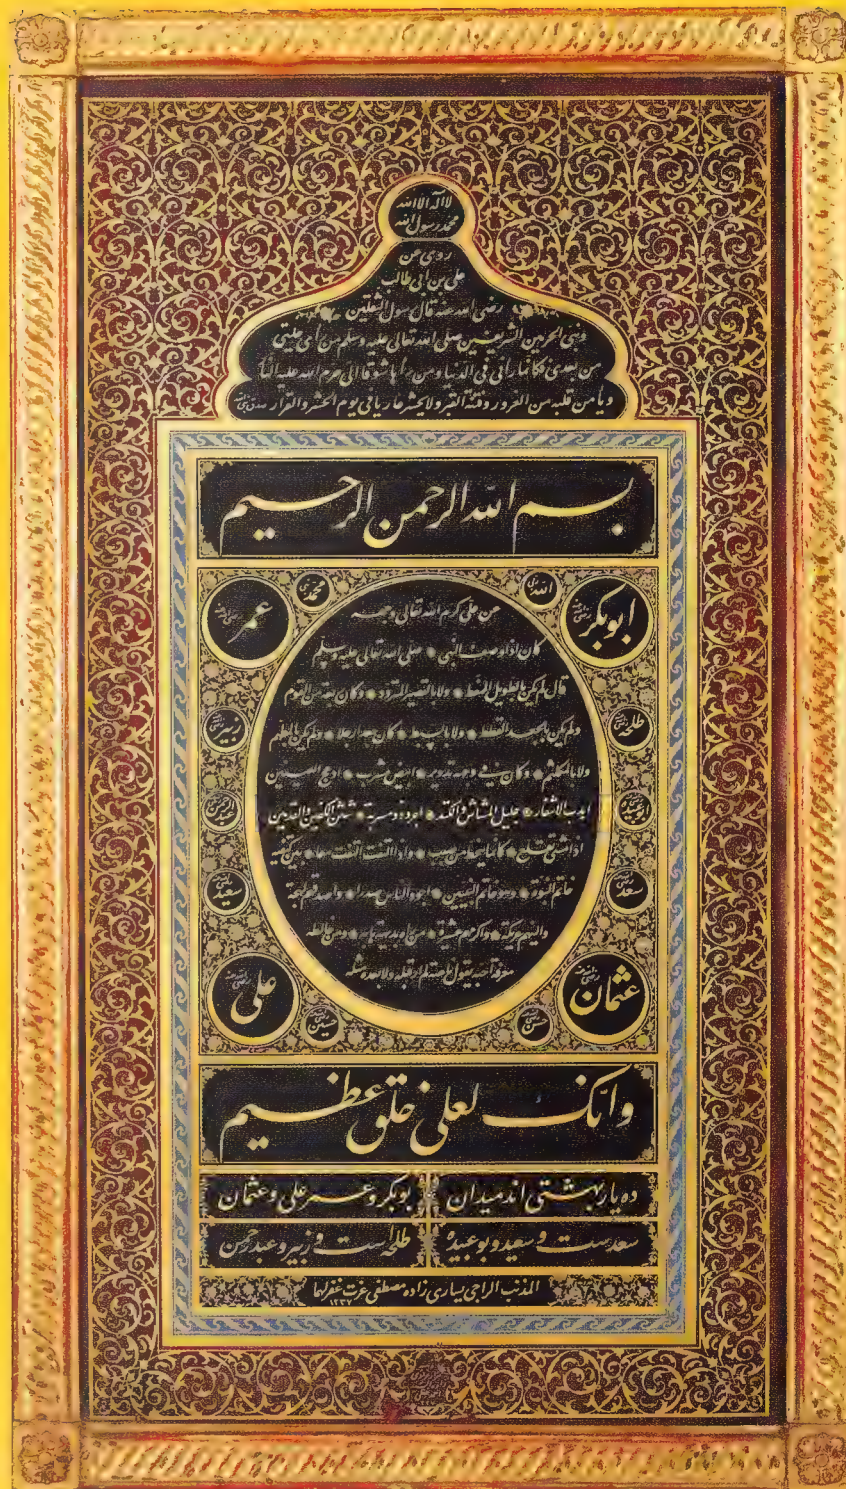 لااله الاالله
محمد رسول الله
روى عن
على بن ابى طالب
رضى الله عنه قال رسول الثقلين
ونبى الحرمين الشريفين صلى الله تعالى عليه وسلم من رأى حليتى
من بعدى فكانما رآنى فى الدنيا ومن رآها شوقا الى حرم الله عليه النار
ويأمن قلبه من الغرور وفتنة القبر ولايحشر عاريا فى يوم الحشر والقرار
بسم الله الرحمن الرحيم
الله
محمد
ابوبكر
عمر
عن على كرم الله تعالى وجهه
كان اذا وصف النبى صلى الله تعالى عليه وسلم
قال لم يكن بالطويل الممغط ولا بالقصير المتردد وكان ربعة من القوم
ولم يكن بالجعد القطط ولا بالسبط كان جعدا رجلا ولم يكن بالمطهم
ولا بالمكلثم وكان فى وجهه تدوير ابيض مشرب ادعج العينين
اهدب الاشفار جليل المشاش والكتد اجرد ذو مسربة شثن الكفين والقدمين
اذا مشى تقلع كانما ينحط من صبب واذا التفت التفت معا بين كتفيه
خاتم النبوة وهو خاتم النبيين اجود الناس صدرا واصدقهم لهجة
والينهم عريكة واكرمهم عشيرة من رآه بديهة هابه ومن خالطه
معرفة احبه يقول ناعته لم ار قبله ولا بعده مثله
طلحه
زبير
سعد
سعيد
عثمان
على
حسن
حسين
وانك لعلى خلق عظيم
ده يار بهشتى اند ميدان بوبكر و عمر على و عثمان
سعدست و سعيد و بوعبيده طلحه است و زبير و عبدرحمن
المذنب الراجى يسارى زاده مصطفى عزت غفر لهما
١٢٣٧